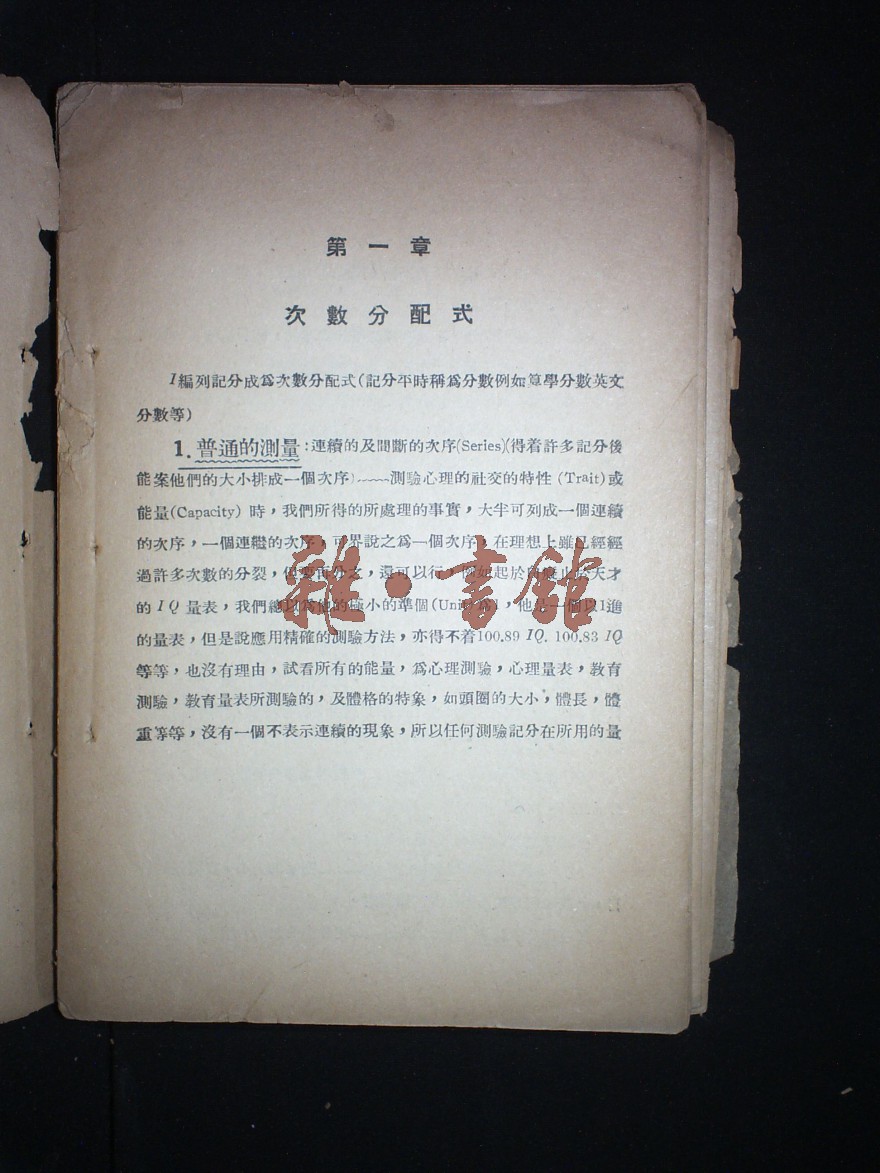 第一章
次數分配式
I編列記分成爲次數分配式(記分平時稱爲分數例如算學分數英文
分數等)
1. 普通的測量:連續的及間斷的次序(Series)(得着許多記分後
能案他們的大小排成一個次序)﹏﹏測驗心理的社交的特性 (Trait)或
能量(Capacity) 時,我們所得的所處理的事實,大半可列成一個連續
的次序,一個連繼的次序,可界說之爲一個次序,在理想上雖已經經
過許多次數的分裂,但要再分之,還可以行,例如起於白癡止於天才
的 IQ 量表,我們總以爲他的極小的準個(Unit)爲1,他是一個以1進
的量表,但是說應用精確的測驗方法,亦得不着100.89 IQ. 100.83 IQ
等等,也沒有理由,試看所有的能量,爲心理測驗,心理量表,教育
測驗,教育量表所測驗的,及體格的特象,如頭圈的大小,體長,體
重等等,沒有一個不表示連續的現象,所以任何測驗記分在所用的量
雜·書館